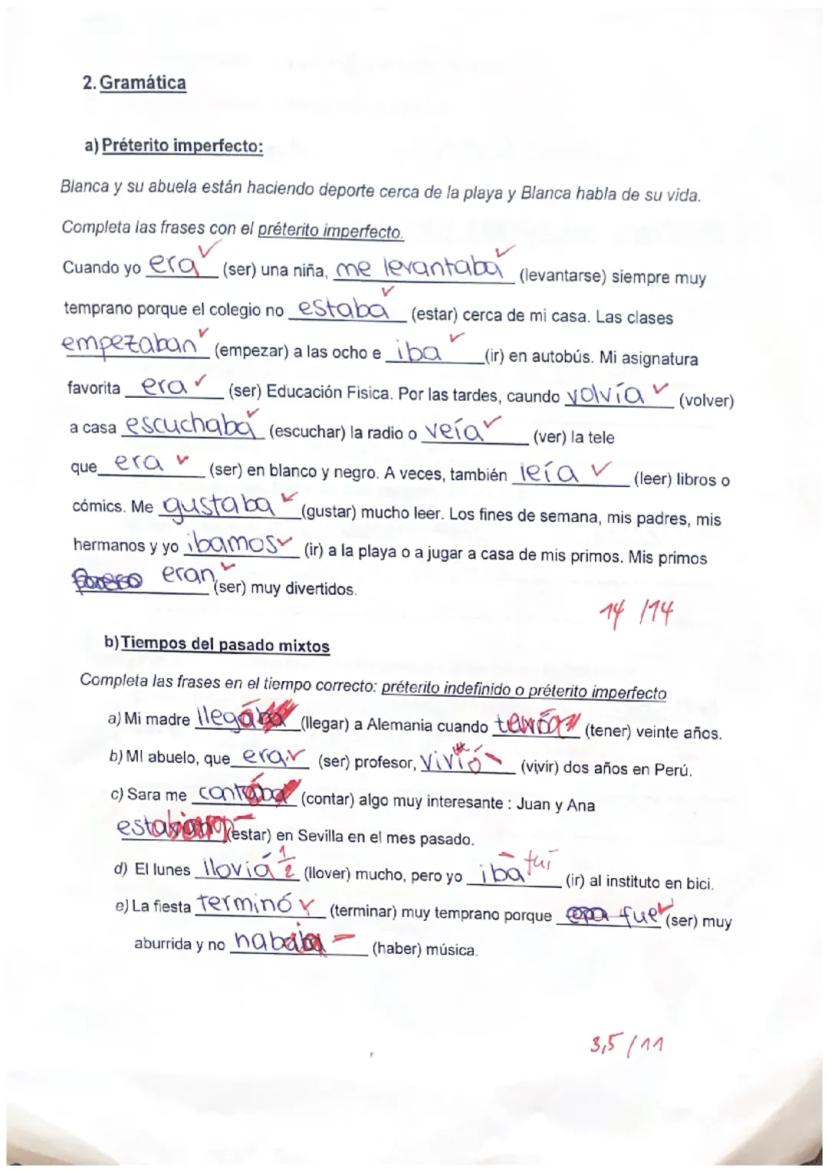 2. Gramática
a) Préterito imperfecto:
Blanca y su abuela están haciendo deporte cerca de la playa y Blanca habla de su vida.
Completa las frases con el préterito imperfecto.
Cuando yo era (ser) una niña, me levantaba (levantarse) siempre muy
temprano porque el colegio no estaba (estar) cerca de mi casa. Las clases
empezaban (empezar) a las ocho e iba (ir) en autobús. Mi asignatura
favorita era (ser) Educación Fisica. Por las tardes, caundo volvía (volver)
a casa escuchaba (escuchar) la radio o veía (ver) la tele
que era (ser) en blanco y negro. A veces, también leía (leer) libros o
cómics. Me gustaba (gustar) mucho leer. Los fines de semana, mis padres, mis
hermanos y yo ibamos (ir) a la playa o a jugar a casa de mis primos. Mis primos
eran (ser) muy divertidos.
14 /14
b) Tiempos del pasado mixtos
Completa las frases en el tiempo correcto: préterito indefinido o préterito imperfecto
a) Mi madre (llegar) a Alemania cuando (tener) veinte años.
b) MI abuelo, que era (ser) profesor, (vivir) dos años en Perú.
c) Sara me (contar) algo muy interesante : Juan y Ana
(estar) en Sevilla en el mes pasado.
d) El lunes llovió 1/2 (llover) mucho, pero yo iba fui (ir) al instituto en bici.
e) La fiesta terminó (terminar) muy temprano porque fue (ser) muy
aburrida y no (haber) música.
3,5 / 11